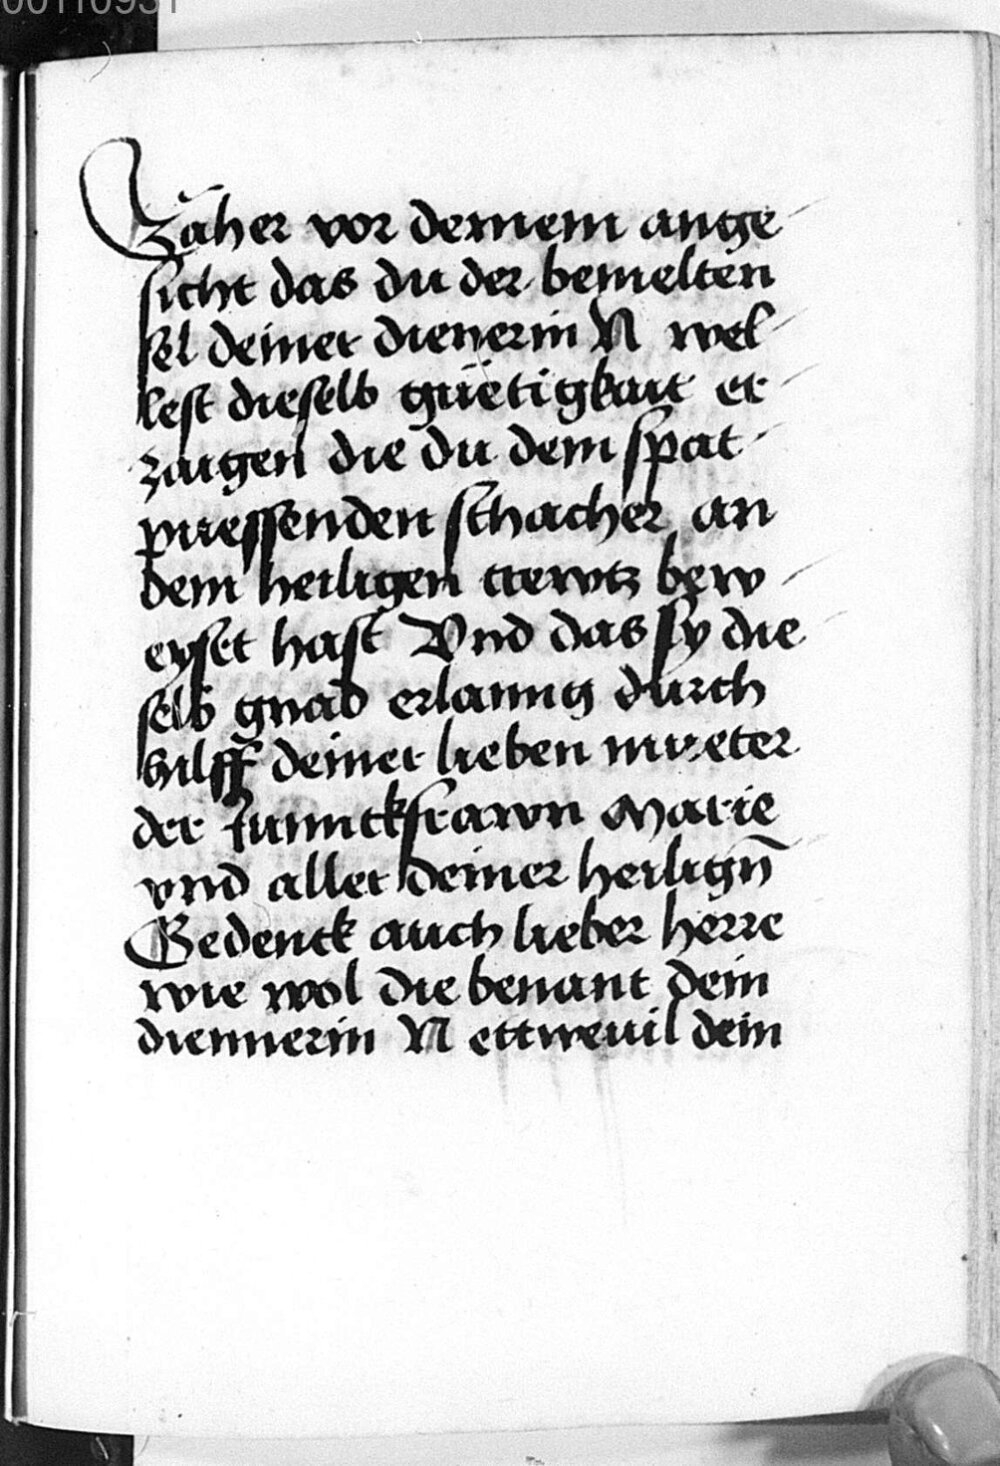 00110931
Zäher vor deinem ange
sicht das du der bemelten
sel deiner dienerin N wel
lest dieselb güetigkait er
zaigen die du dem spat
puessenden schacher an
dem heiligen crewtz bew
eyset hast Vnd das sy die
selb gnad erlanng durch
hilff deiner lieben mueter
der Junnckfrawn Marie
vnd aller deiner heiligñ
Gedenck auch lieber herre
wie wol die benant dein
diennerin N ettweuil dein